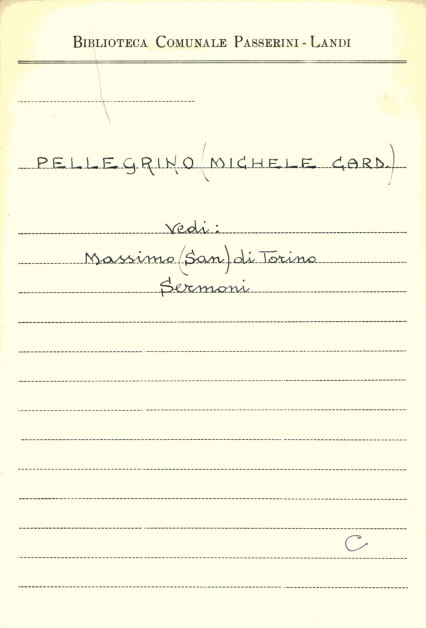 BIBLIOTECA COMUNALE PASSERINI - LANDI
PELLEGRINO (MICHELE CARD.)
Vedi:
Massimo (San) di Torino
Sermoni
C